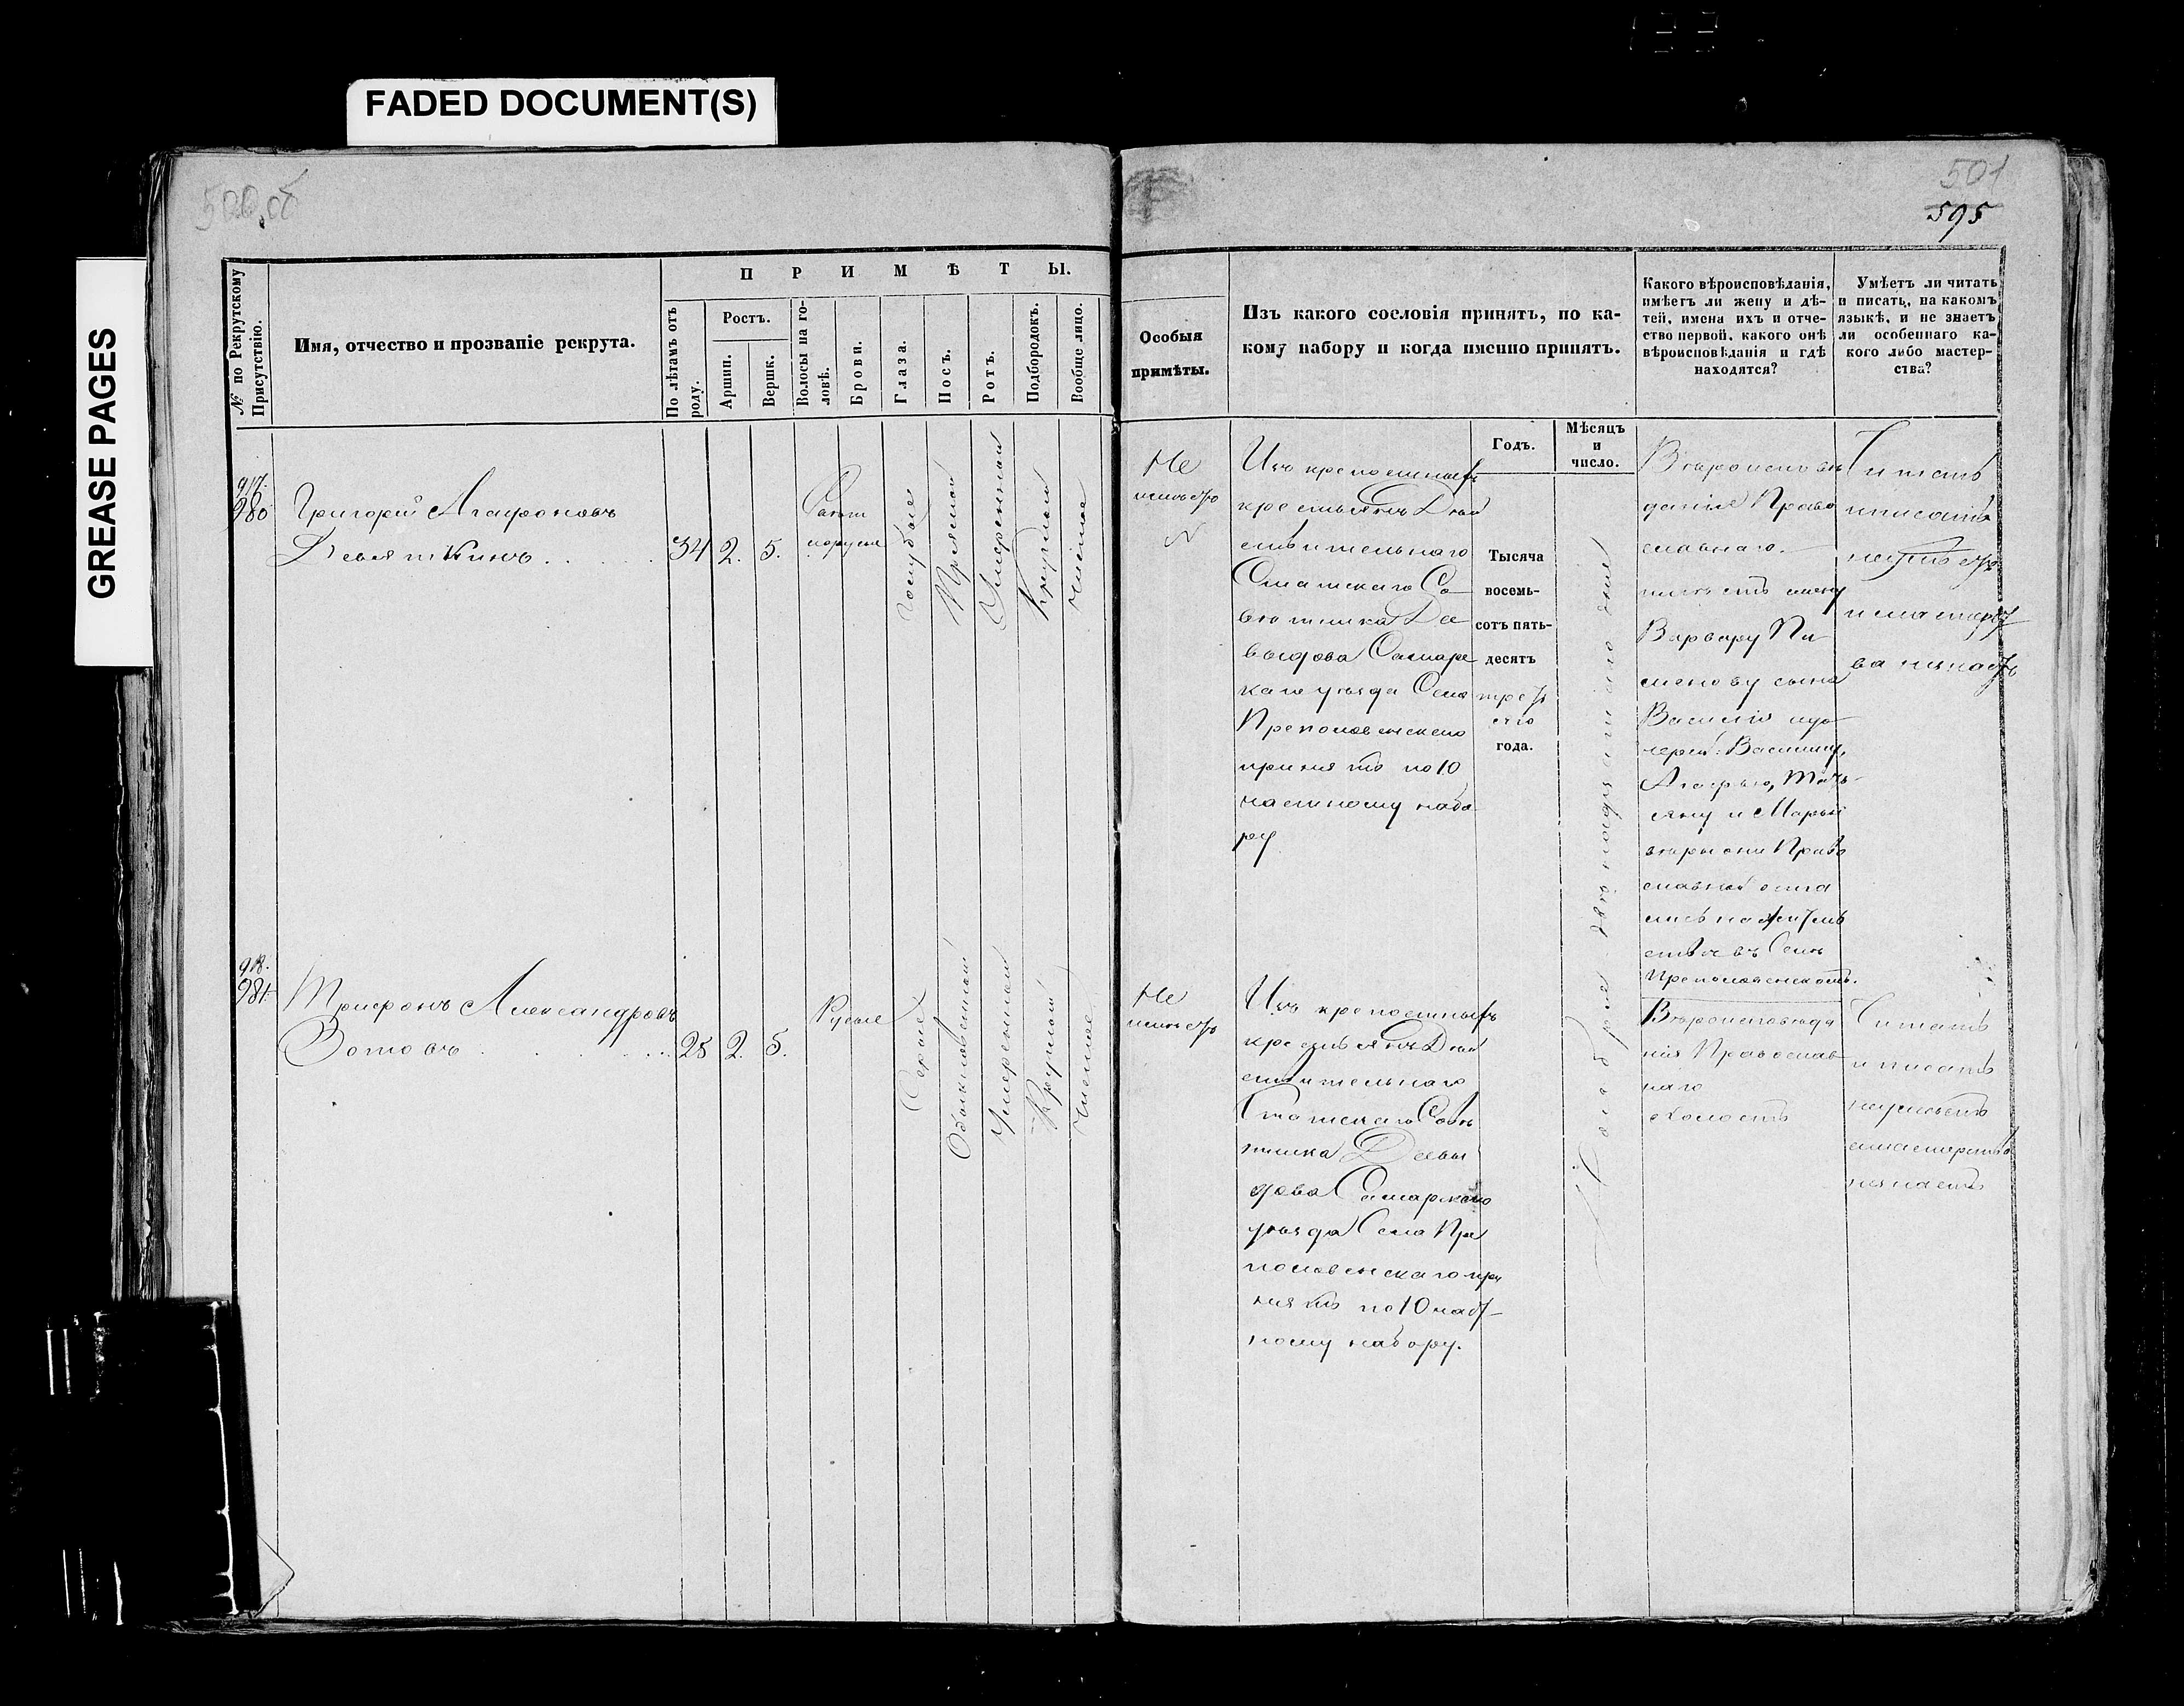 FADED DOCUMENT(S)
GREASE PAGES
500.об
501
595
№ по Рекрутскому Присутствію.
Имя, отчество и прозваніе рекрута.
ПРИМѢТЫ.
По лѣтамъ отъ роду.
Ростъ.
Аршин.
Вершк.
Волосы на головѣ.
Брови.
Глаза.
Носъ.
Ротъ.
Подбородокъ.
Вообще лицо.
Особыя
примѣты.
Изъ какого сословія принятъ, по ка-
кому набору и когда именно принятъ.
Какого вѣроисповѣданія,
имѣетъ ли жену и дѣ-
тей, имена ихъ и отче-
ство первой, какого онѣ
вѣроисповѣданія и гдѣ
находятся?
Умѣетъ ли читать
и писать, на какомъ
языкѣ, и не знаетъ
ли особеннаго ка-
кого либо мастер-
ства?
Годъ.
Мѣсяцъ
и
число.
917.
980
Григорій Агафоновъ
Девяткинъ
34 2. 5.
голубые
Прямой
Умеренный
Круглый
чистое
Не
имѣетъ
Изъ крепостныхъ
крестьянъ Дѣй
ствительнаго
Статскаго Со
вѣтника Да
выдова Самарс
каго уѣзда Села
Преполовенскаго
принятъ по 10
частному набо
ру
Тысяча
восемь-
сотъ пять-
десятъ
треть
его
года.
Ноября двенадцатаго дня
Вѣроисповѣ
данія Право
славнаго.
имѣетъ жену
Варвару Пи
менову сына
Василія и до
черей: Василису,
Агафью, Тать
яну и Марью
вѣры они Право
славной оста
лись на житель
ствѣ въ Селѣ
Преполовенскомъ.
Читать
и писать
не умѣетъ
и мастерст
ва не знаетъ
918.
981.
Трифонъ Александровъ
Зотовъ
25 2. 5.
Русые
Серые
Обыкновенный
Умеренный
Круглый
Чистое
Не
имѣетъ
Изъ крепостныхъ
крестьянъ Дѣй
ствительнаго
Статскаго Совѣ
тника Давы
дова Самарскаго
уѣзда Села Пре
половенскаго при
нятъ по 10 част
ному набору.
Вѣроисповѣда
нія Православ
наго
холостъ
Читать
и писать
не умѣетъ
и мастерства
не знаетъ